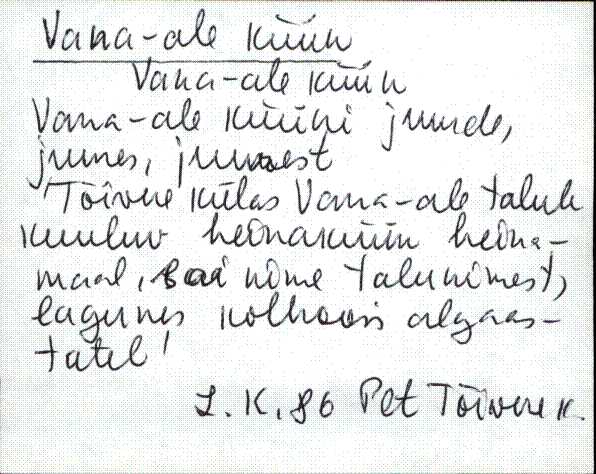 Vana-ale küün
Vana-ale küün
Vana-ale küüni juurde,
juures, juurest
Tõivere külas Vana-ale talule
kuuluv heinaküün heina-
maal, sai nime talunimest,
lagunes kolhoosi algaas-
tatel!
L. K, 86 Plt Tõivere k.